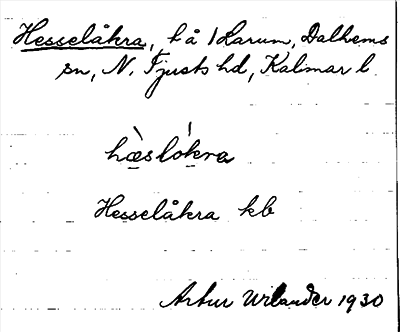 Hesselåkra, t å 1 Larum, Dalhems
sn, N. Tjusts hd, Kalmar l.
hæ̀slókra
Hesselåkra kb
Artur Wilander 1930